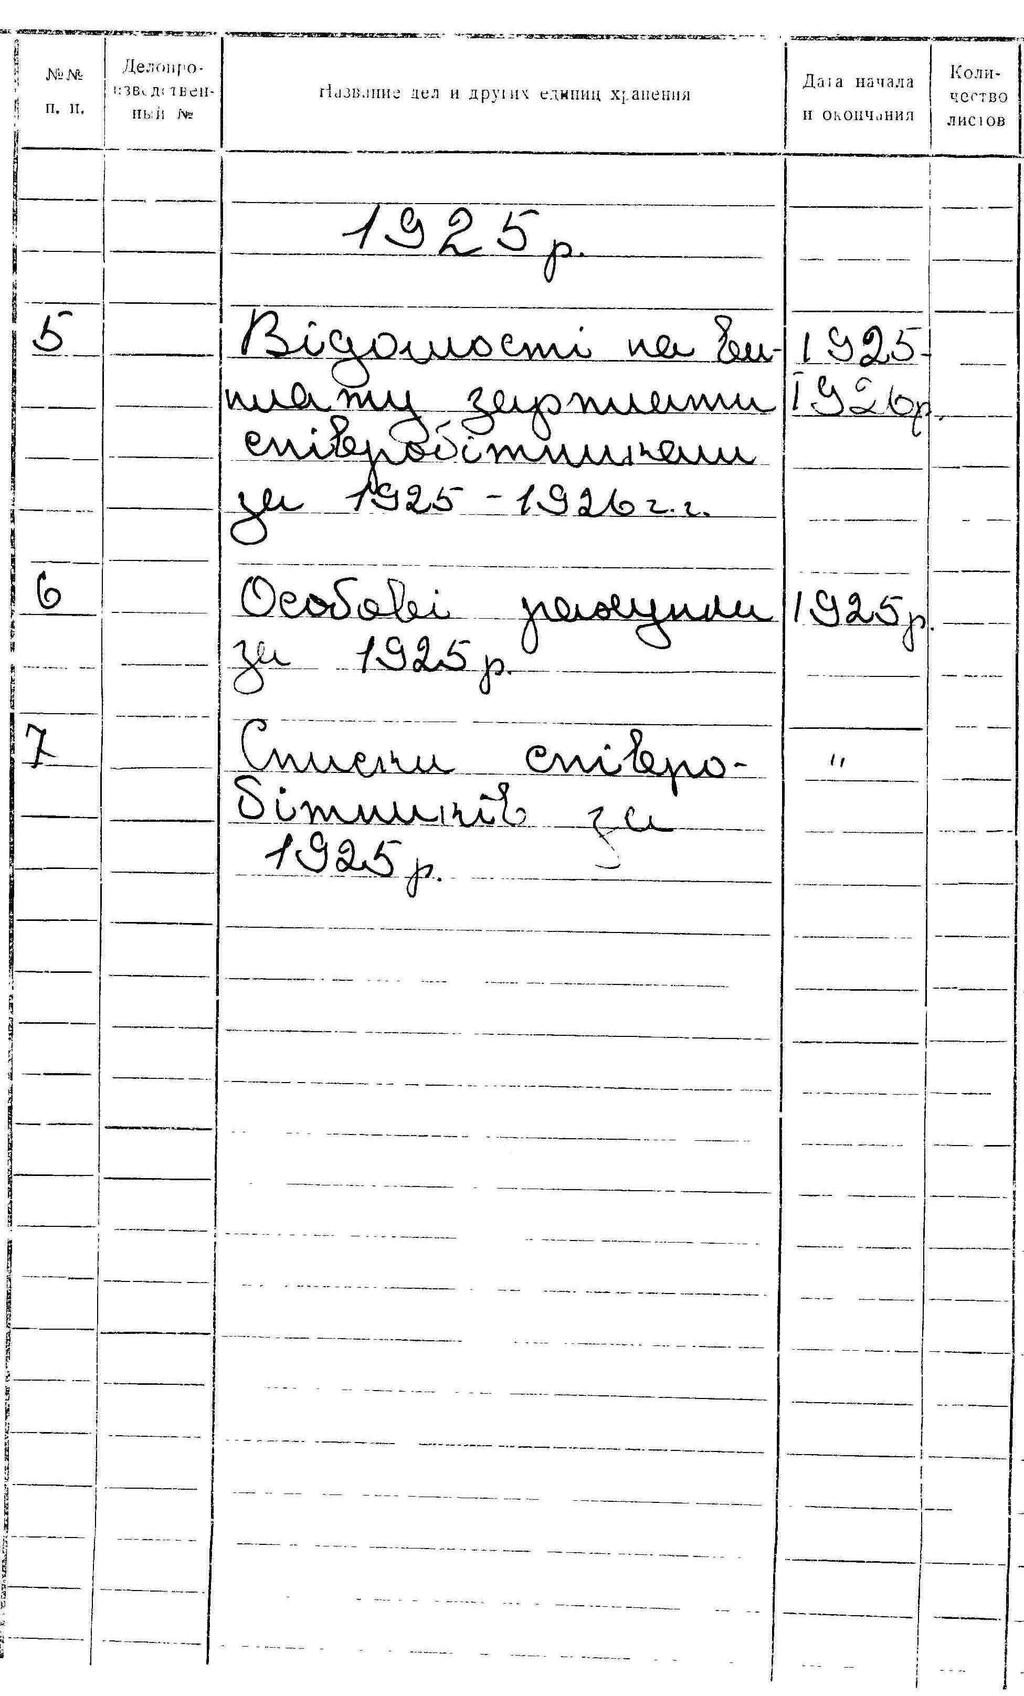 №№ п. п.
Делопро-изводствен-ный №
Название дел и других единиц хранения
Дата начала и окончания
Коли-чество листов
1925 р.
5 Відомості на ви- 1925-
плату зарплати 1926р.
співробітникам
за 1925 - 1926 г.г.
6 Особові рахунки 1925р.
за 1925 р.
7 Списки співро- "
бітників за
1925 р.